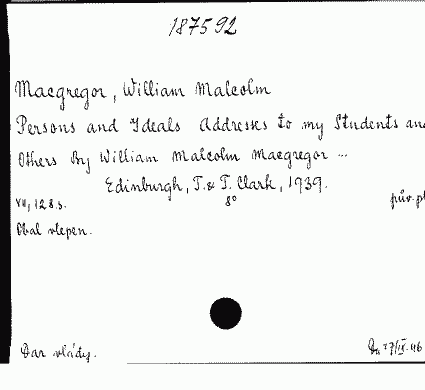 187592
Macgregor, William Malcolm
Persons and Ideals Addresses to my Students and
Others By William Malcolm Macgregor ...
Edinburgh, T. & T. Clark, 1939.
VII, 128 s. 8° pův. pl
Obal vlepen.
Dar vlády. 17/IX. 46